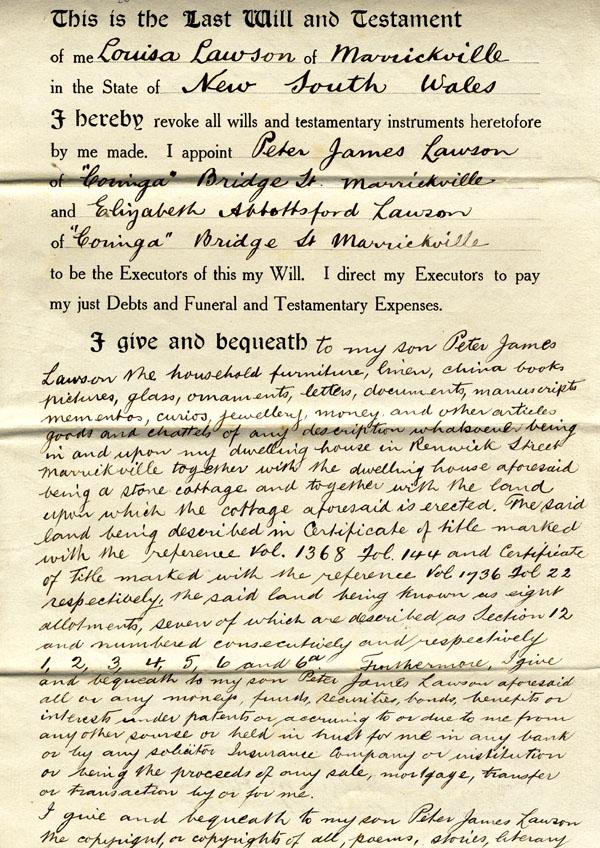 This is the Last Will and Testament
of me Louisa Lawson of Marrickville
in the State of New South Wales
I hereby revoke all wills and testamentary instruments heretofore
by me made. I appoint Peter James Lawson
of "Coinga" Bridge St. Marrickville
and Elizabeth Abbottsford Lawson
of "Coinga" Bridge St Marrickville
to be the Executors of this my Will. I direct my Executors to pay
my just Debts and Funeral and Testamentary Expenses.
I give and bequeath to my son Peter James
Lawson the household furniture, linen, china books
pictures, glass, ornaments, letters, documents, manuscripts
mementos, curios, jewellery, money and other articles
goods and chattels of any description whatsoever being
in and upon my dwelling house in Renwick Street
Marrickville together with the dwelling house aforesaid
being a stone cottage and together with the land
upon which the cottage aforesaid is erected. The said
land being described in Certificate of title marked
with the reference Vol. 1368 Fol. 144 and Certificate
of Title marked with the reference Vol 1736 Fol 22
respectively, the said land being known as eight
allotments, seven of which are described as Section 12
and numbered consecutively and respectively
1, 2, 3, 4, 5, 6 and 6a Furthermore, I give
and bequeath to my son Peter James Lawson aforesaid
all or any moneys, funds, securities, bonds, benefits or
interests under patents or, accruing to or due to me from
any other sourse or held in trust for me in any bank
or by any solicitor Insurance Company or institution
or being the proceeds of any sale, mortgage, transfer
or transaction by or for me.
I give and bequeath to my son Peter James Lawson
the copyright, or copyrights of all, poems, stories, literary